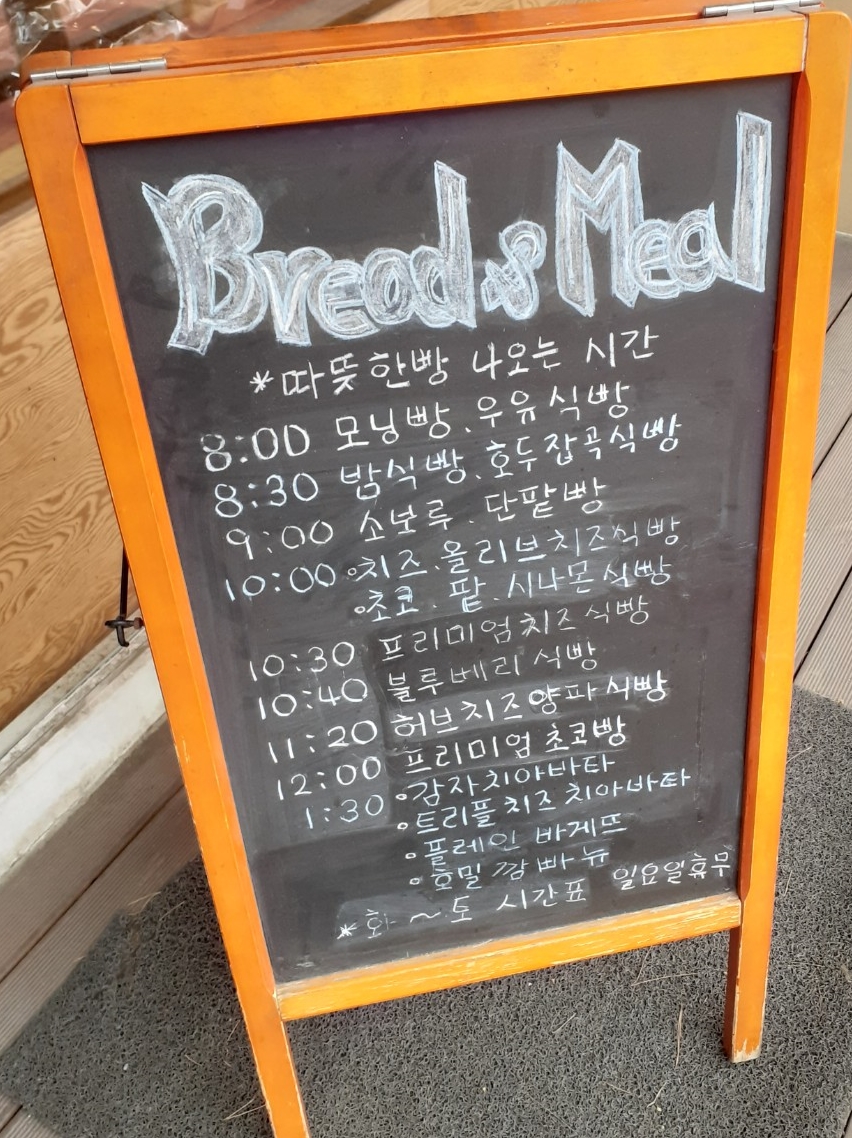 Bread & Meal
*따뜻한빵 나오는 시간
8:00 모닝빵. 우유식빵
8:30 밤식빵. 호두잡곡식빵
9:00 소보루. 단팥빵
10:00 ∘치즈. 올리브치즈식빵
∘초코. 팥. 시나몬식빵
10:30 프리미엄치즈식빵
10:40 블루베리식빵
11:20 허브치즈양파식빵
12:00 프리미엄초코빵
1:30 ∘감자치아바타
∘트리플치즈치아바타
∘플레인 바게뜨
∘호밀깜빠뉴
*화~토 시간표 일요일휴무